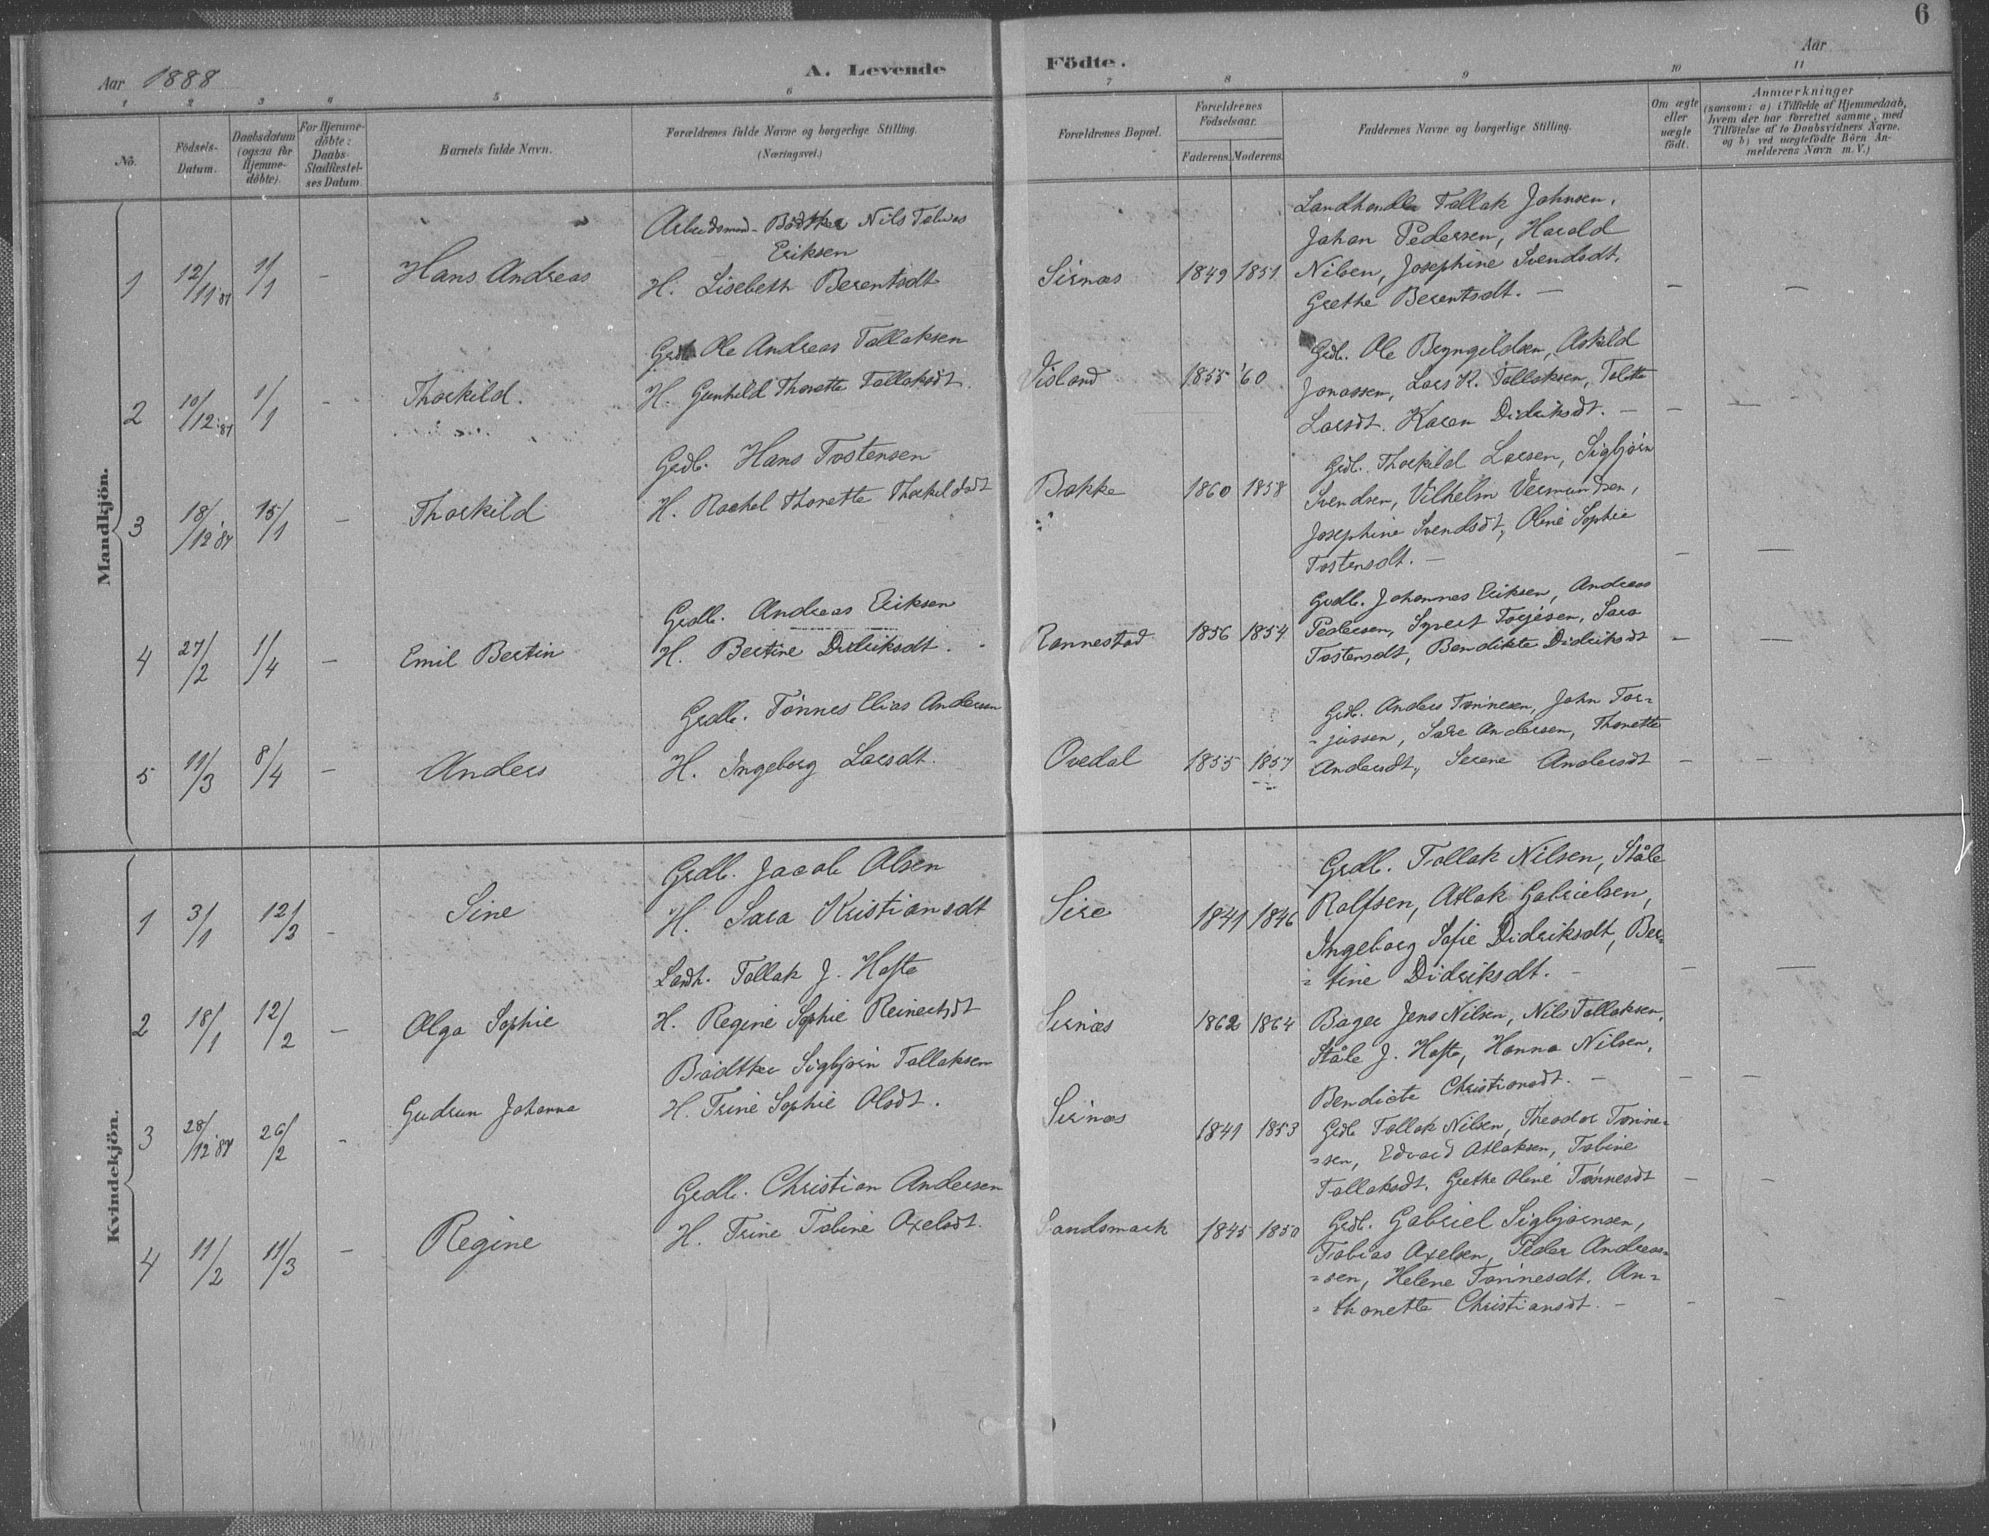 6
Aar 1888
A. Levende Födte.
Aar
1 2 3 4 5 6 7 8 9 10 11
No.
Födsels-Datum.
Daabsdatum (ogsaa for Hjemmedöbte).
For Hjemmedöbte: Daabs-Stadfæstelses Datum.
Barnets fulde Navn.
Forældrenes fulde Navne og borgerlige Stilling. (Næringsvei.)
Forældrenes Bopæl.
Forældrenes Födselsaar.
Faderens. Moderens.
Faddernes Navne og borgerlige Stilling.
Om ægte eller uægte födt.
Anmærkninger
(saasom: a) i Tilfælde af Hjemmedaab, hvem der har forrettet samme, med Tilföielse af to Daabsvidners Navne, og b) ved uægtefödte Börn Anmelderens Navn m. V.)
Mandkjön.
1 12/11 87 1/1 – Hans Andreas
Arbeidsmand – Bødtker Nils Tobias
Eriksen
H. Lisebeth Berentsdt
Sirnæs 1849 1851
Landhandler Tallak Johnsen,
Johan Pedersen, Harald
Nilsen, Josephine Svendsdt.
Grethe Berentsdt. –
2 10/12 87 1/1 – Thorkild.
Grdb. Ole Andreas Tallaksen
H. Gunhild Thonette Tallaksdt.
Visland 1855 '60
Grdb. Ole Bryngildsen, Askild
Jonassen, Lars K. Tallaksen, Tolette
Larsdt. Karen Didriksdt. –
3 18/12 87 15/1 – Thorkild
Grdb. Hans Tostensen
H. Rachel Thonette Thorkildsdt
Bakke 1860 1858
Grdb. Thorkild Larsen, Sigbjørn
Svendsen, Vilhelm Vermundsen,
Josephine Svendsdt, Oline Sophie
Tostensdt. –
4 27/2 1/4 – Emil Bertin
Grdb. Andreas Eriksen
H. Bertine Didriksdt.
Rannestad 1856 1854
Grdb. Johannes Eriksen, Andreas
Pedersen, Syvert Torjesen, Sara
Tostensdt, Bendikte Didriksdt
5 11/3 8/4 – Anders
Grdb. Tønnes Elias Andersen
H. Ingeborg Larsdt.
Ovedal 1855 1857
Grdb. Anders Tønnesen, John Tor-
-jussen, Andersen, Thonette
Andersdt, Serene Andersdt
Kvindekjön.
1 3/1 12/3 – Sine
Grdb. Jacob Olsen
H. Sara Kristiansdt
Sire 1841 1846
Grdb. Tallak Nilsen, Ståle
Rolfsen, Atlak Gabrielsen,
Ingeborg Sofie Didriksdt, Ber-
-tine Didriksdt. –
2 18/1 12/2 – Olga Sophie
Landh. Tallak J. Hafto
H. Regine Sophie Reinertsdt
Sirnæs 1862 1864
Bager Jens Nilsen, Nils Tallaksen,
Ståle J. Hafto, Hanna Nilsen,
Bendicte Christiansdt. –
3 28/12 87 26/2 – Gudrun Johanna
Bødtker Sigbjørn Tallaksen
H. Trine Sophie Olsdt.
Sirnæs 1841 1853
Grdb Tallak Nilsen, Theodor Tønne-
-sen, Edvard Atlaksen, Tobine
Tallaksdt. Grethe Oline Tønnesdt
4 11/2 11/3 – Regine
Grdb. Christian Andersen
H. Trine Tobine Axelsdt.
Sandsmark 1845 1850
Grdb. Gabriel Sigbjørnsen,
Tobias Axelsen, Peder Andreas-
-sen, Helene Tønnesdt. An-
-thonette Christiansdt. –